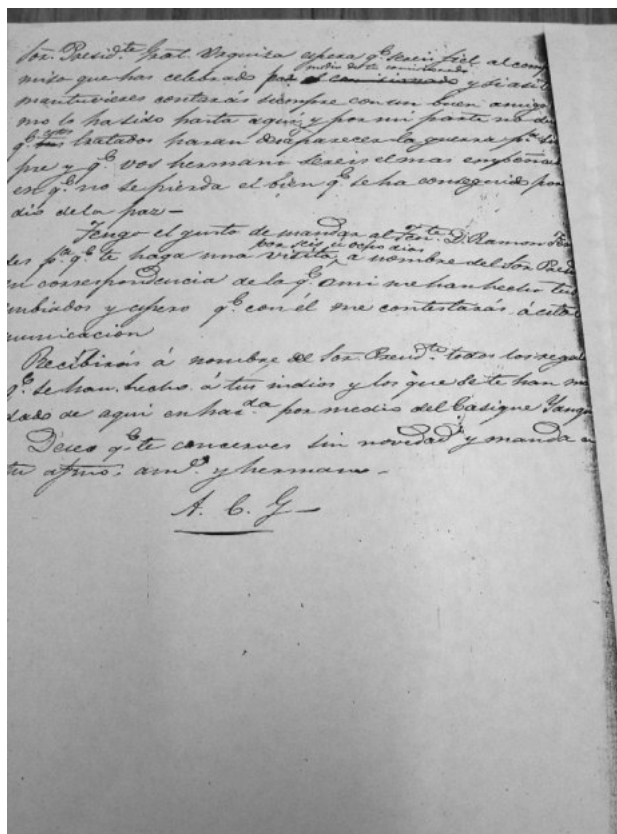 Sor. Presid.te Gral. Urquiza espera q.e sereis fiel al comp
medio de tu comisionado
miso que has celebrado por el comisionado y si asi l
mantuvieses contarás siempre con un buen amigo
mo lo ha sido hasta aquí; y por mi parte no du
q.e tratados haran desaparecer la guerra p.a si
pre y q.e vos hermano sereis el mas empeñad
en q.e no se pierda el bien q.e se ha conseguido por
dio de la paz—
Tengo el gusto de mandar al D. Ramon
por seis u ocho dias
des p.a q.e te haga una visita, a nombre del Sor. Presid
en correspondencia de la q.e a mi me han hecho tus
nviados y espero q.e con él me contestarás á esta
municacion
Recibirás á nombre del Sor. Presid.te todos los regal
q.e se han hecho á tus indios y los que se te han ma
dado de aqui en har.da por medio del Casique Yanqu
Deseo q.e te concerves sin novedad y manda a
tu afmo. am.o y hermano.
A. C. G—